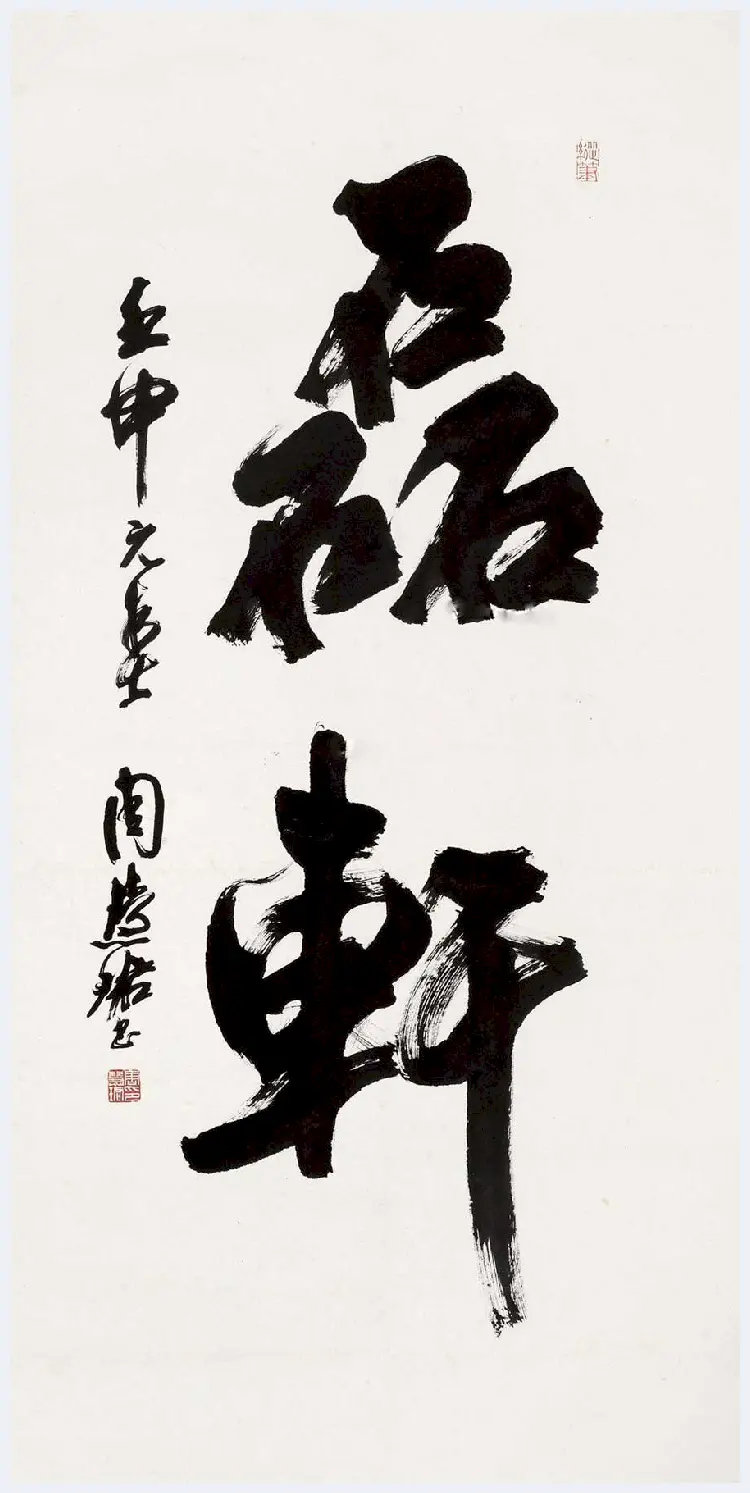 磊軒
壬申元 周慧珺书